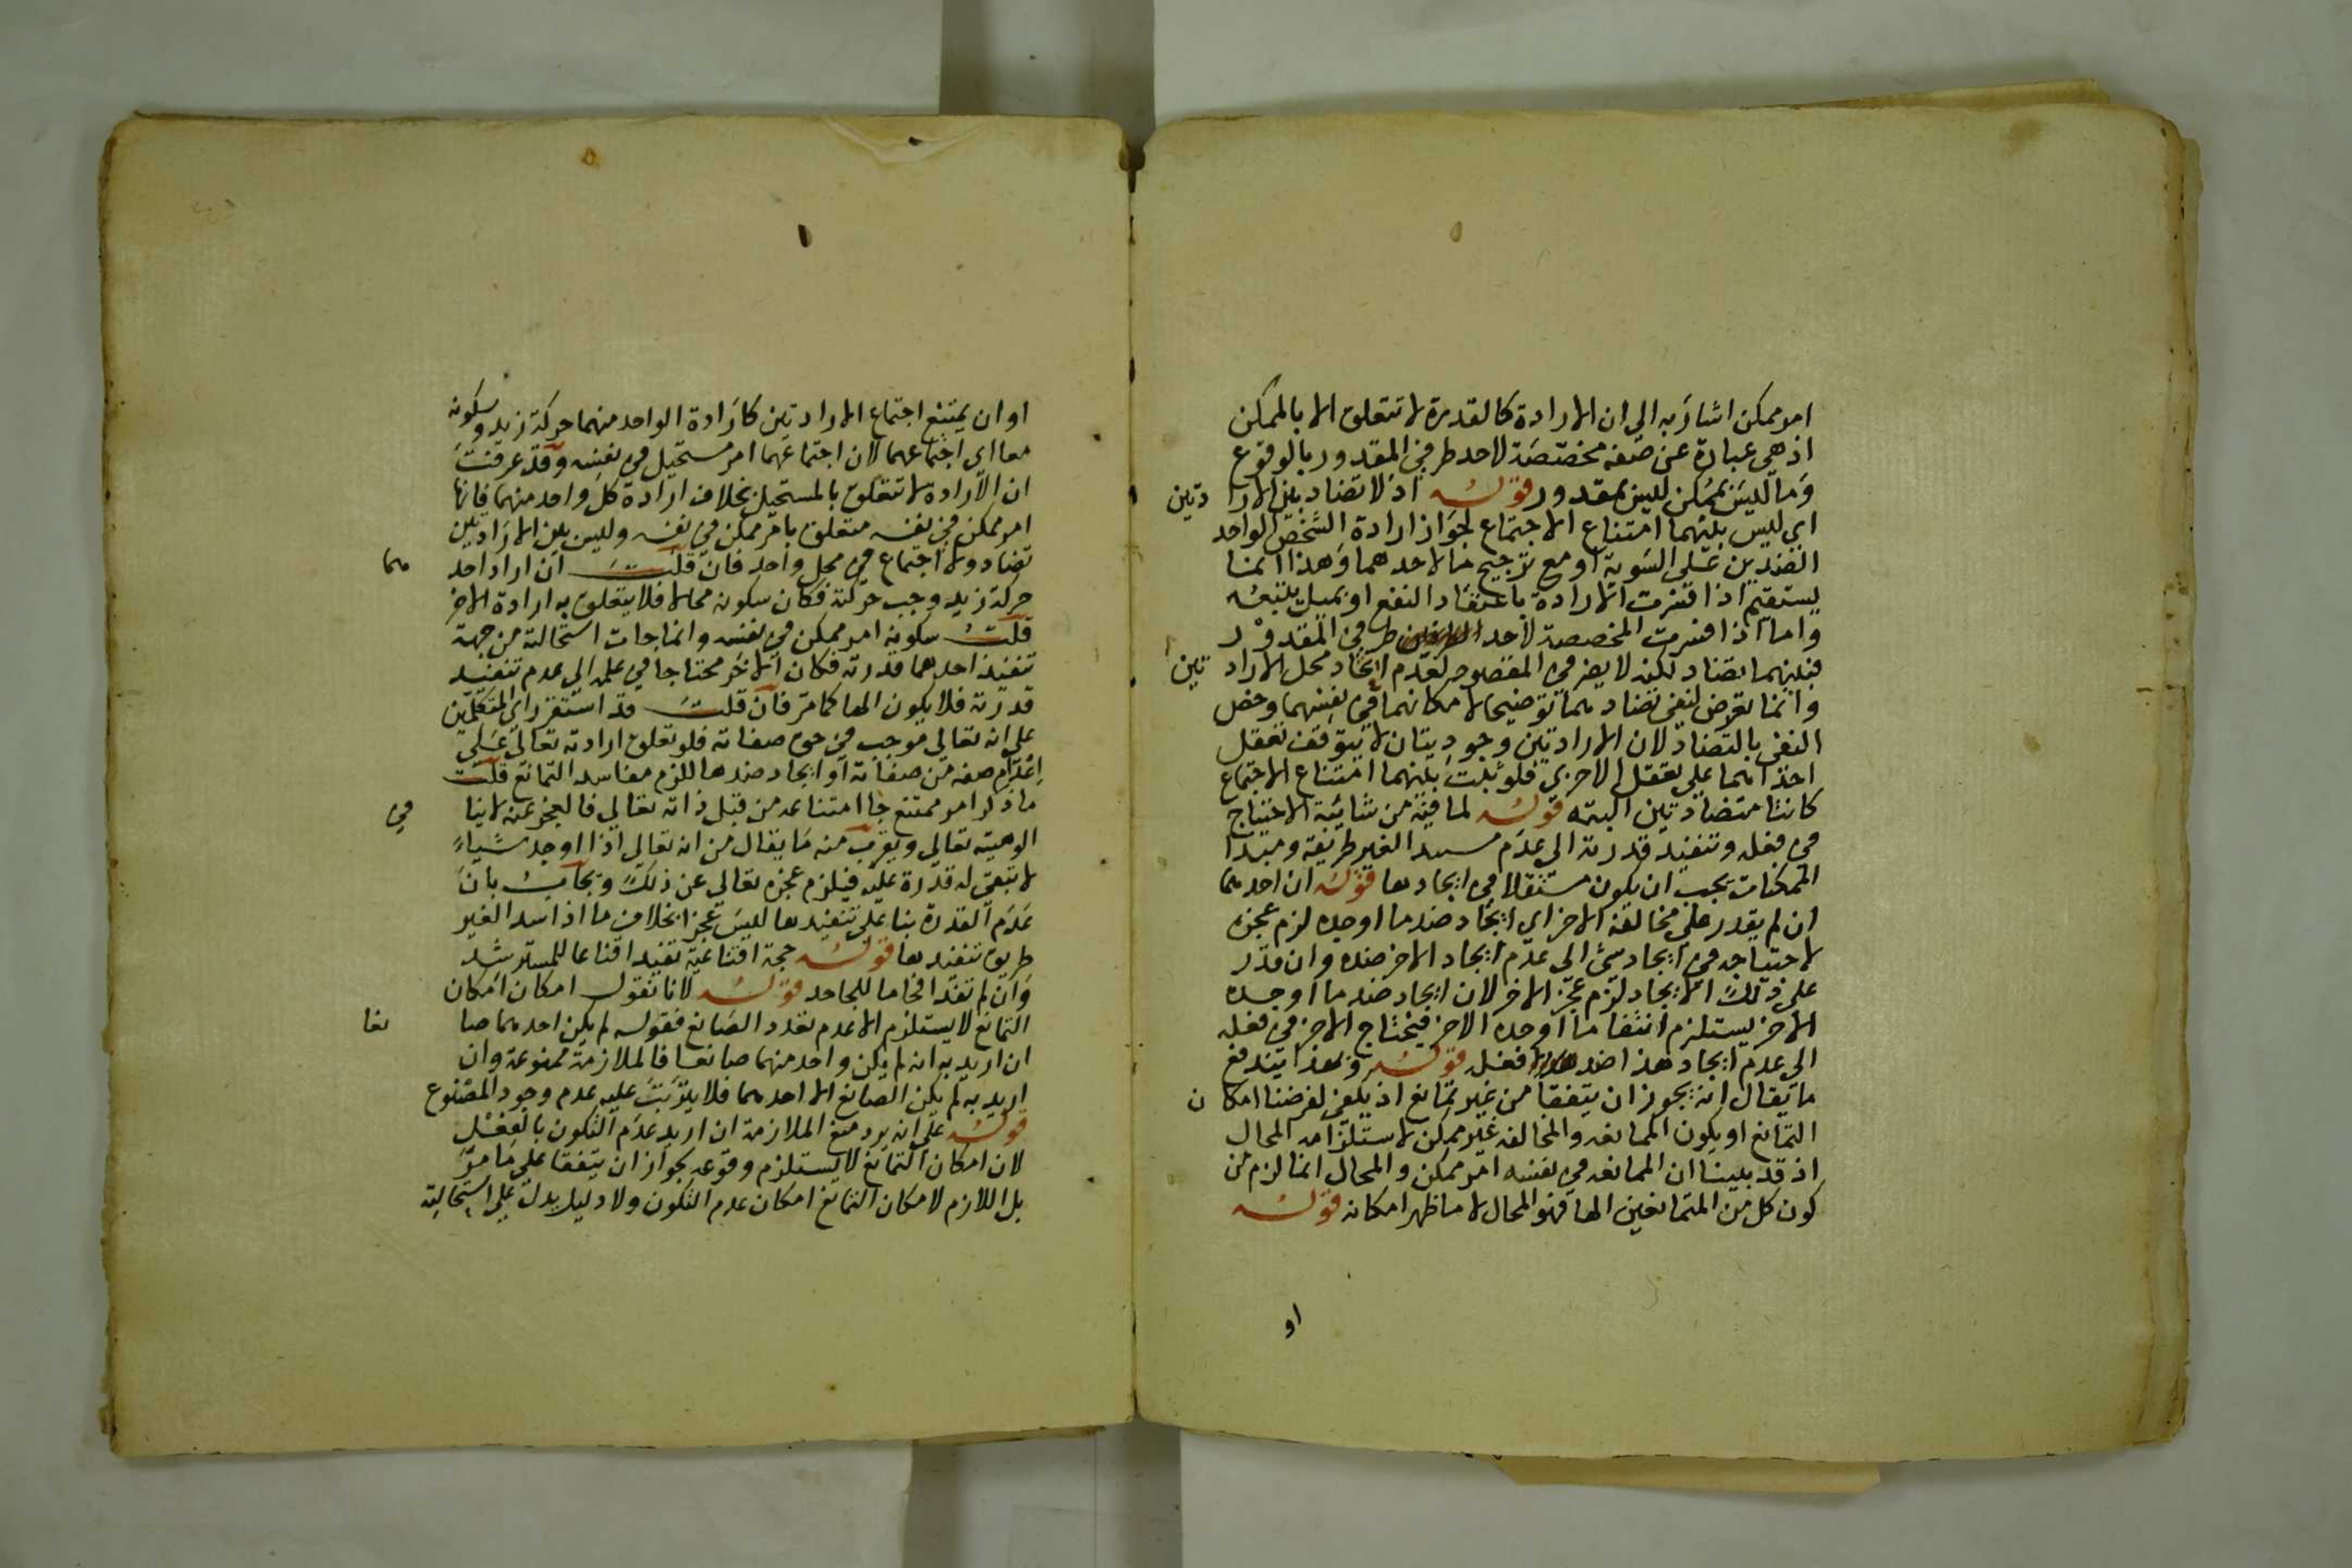 امر ممكن اشار به الى ان الارادة كالقدرة لا تتعلق الا بالممكن
اذ هي عبارة عن صفة مخصصة لاحد طرفي المقدور بالوقوع
وما ليس بممكن ليس بمقدور قوله اذ لا تضاد بين الارادتين
اى ليس بينهما امتناع الاجتماع لجواز ارادة الشخص الواحد
الضدين على السوية او مع ترجيح ما لاحدهما وهذا انما
يستقيم اذا فسرت الارادة باعتقاد النفع او بميل يتبعه
واما اذا فسرت المخصصة لاحد طرفي المقدور
فبينهما تضاد لكنه لا يضر في المقصود لعدم اتحاد محل الارادتين
وانما تعرض لنفي تضادهما توضيحا لامكانهما في نفسهما وخص
النفي بالتضاد لان الارادتين وجوديتان لا يتوقف تعقل
احداهما على تعقل الاخرى فلو ثبت بينهما امتناع الاجتماع
كانتا متضادتين البته قوله لما فيه من شائبة الاحتياج
في فعله وتنفيذ قدرته الى عدم سد الغير طريقه ومبدا
الممكنات يجب ان يكون مستقلا في ايجادها قوله ان احدهما
ان لم يقدر على مخالفة الاخر اي ايجاد ضد ما اوجده لزم عجزه
لاحتياجه في ايجاد شئ الى عدم ايجاد الاخر ضده وان قدر
على ذلك الايجاد لزم عجز الاخر لان ايجاد ضد ما اوجده
الاخر يستلزم انتفا ما اوجده الاخر فيحتاج الاخر في فعله
الى عدم ايجاد هذا ضد فعله قوله وبهذا يندفع
ما يقال انه يجوز ان يتفقا من غير تمانع اذ يكفي لغرضنا امكان
التمانع او يكون الممانعه والمخالفه غير ممكن لاستلزامه المحال
اذ قد بينا ان الممانعه في نفسه امر ممكن والمحال انما لزم من
كون كل من المتمانعين الها فهو المحال لا ما ظهر امكانه قوله
او
او ان يمتنع اجتماع الارادتين كارادة الواحد منهما حركة زيد وسكونه
معا اي اجتماعهما لان اجتماعهما امر مستحيل في نفسه وقد عرفت
ان الارادة لا تتعلق بالمستحيل بخلاف ارادة كل واحد منهما فانها
امر ممكن في نفسه متعلق بامر ممكن في نفسه وليس بين الارادتين
تضاد ولا اجتماع في محل واحد فان قلت ان اراد احدهما
حركة زيد وجب حركته فكان سكونه محالا فلا يتعلق به ارادة الاخر
قلت سكونه امر ممكن في نفسه وانما جات استحالته من جهة
تنفيذ احدهما قدرته فكان الاخر محتاجا في علمه الى عدم تنفيذ
قدرته فلا يكون الها كما مر فان قلت قد استقر راي المتكلمين
على انه تعالى موجب في حق صفاته فلو تعلق ارادته تعالى على
اعدام صفه من صفاته او ايجاد ضدها للزم مفاسد التمانع قلت
ما ذكر امر ممتنع جا امتناعه من قبل ذاته تعالى فالعجز عنه لا ينافي
الوهيته تعالى ويقرب منه ما يقال من انه تعالى اذا اوجد شياء
لا يبقى له قدرة عليه فيلزم عجزه تعالى عن ذلك ويجاب بان
عدم القدرة بنا على تنفيذها ليس عجزا بخلاف ما اذا سد الغير
طريق تنفيذها قوله حجة اقناعية تفيد اقناعا للمسترشد
وان لم تفد افحاما للجاحد قوله لانا نقول امكان امكان
التمانع لا يستلزم الا عدم تعدد الصانع فقوله لم يكن احدهما صانعا
ان اريد به انه لم يكن واحد منهما صانعا فالملازمة ممنوعة وان
اريد به لم يكن الصانع الا احدهما فلا يترتب عليه عدم وجود المصنوع
قوله على انه يرد منع الملازمة ان اريد عدم التكون بالفعل
لان امكان التمانع لا يستلزم وقوعه لجواز ان يتفقا على ما مر
بل اللازم لامكان التمانع امكان عدم التكون ولا دليل يدل على استحالته